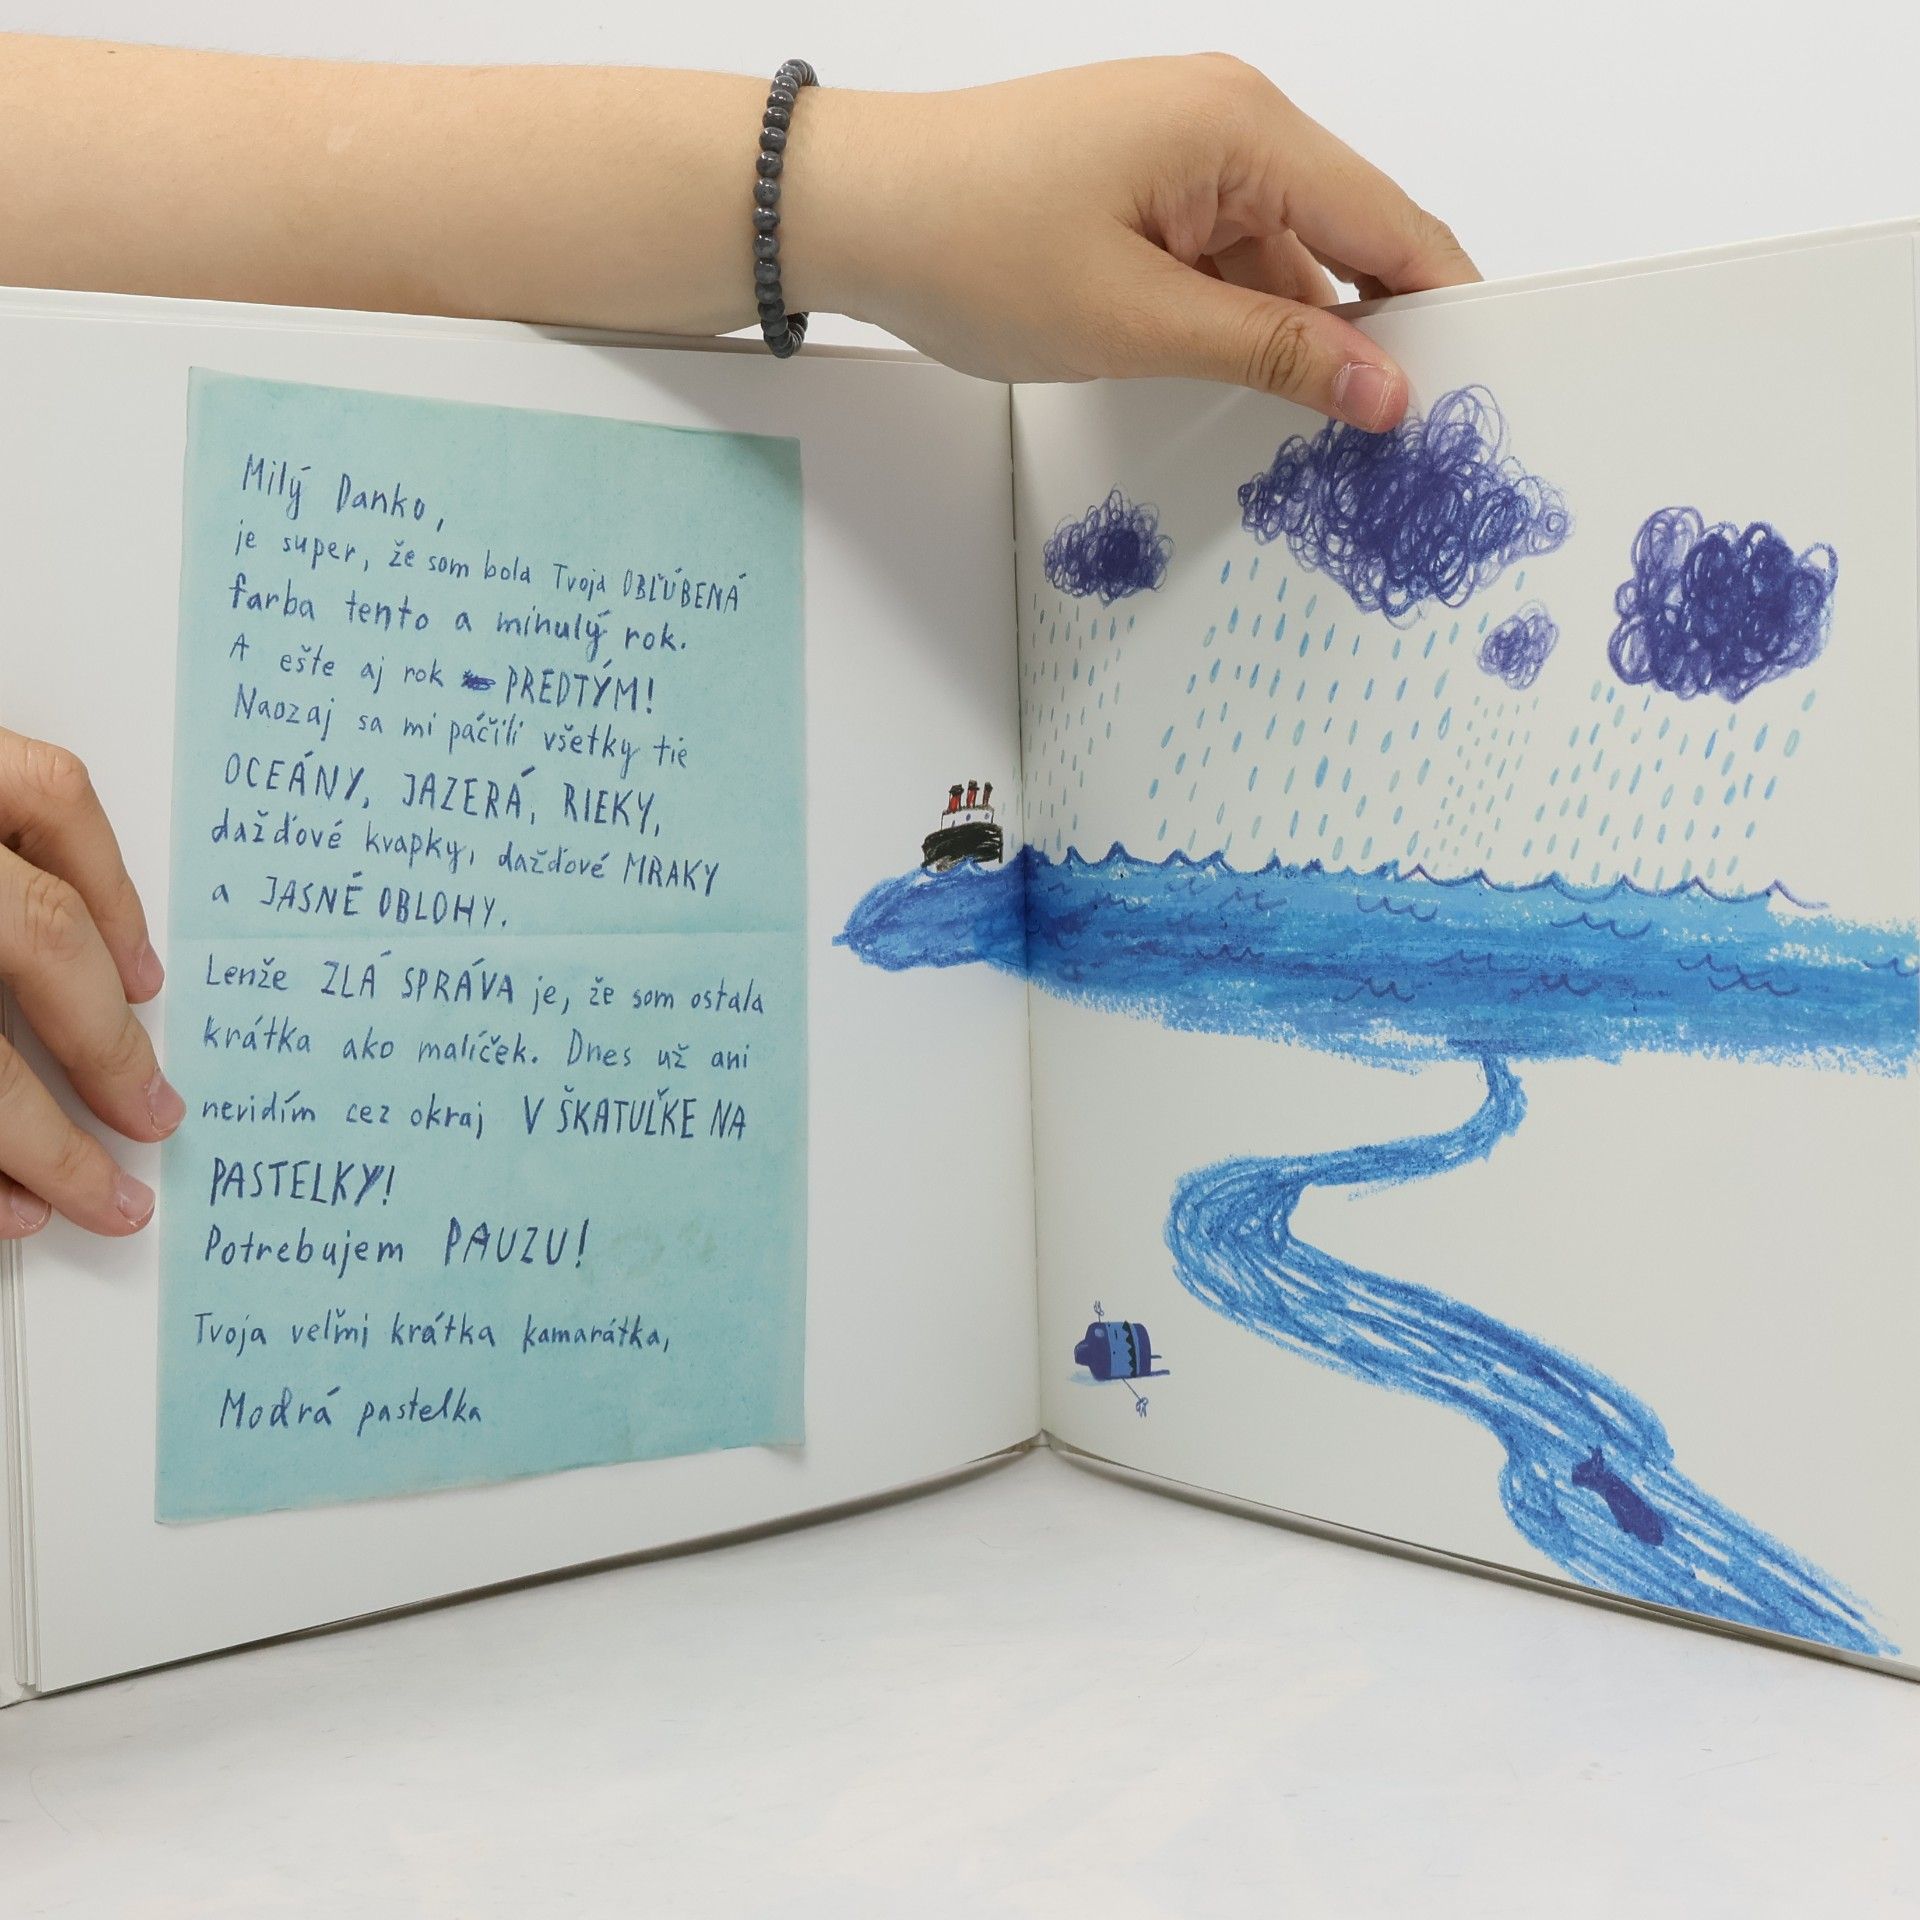 Milý Danko,
je super, že som bola Tvoja OBĽÚBENÁ
farba tento a minulý rok.
A ešte aj rok PREDTÝM!
Naozaj sa mi páčili všetky tie
OCEÁNY, JAZERÁ, RIEKY,
dažďové kvapky, dažďové MRAKY
a JASNÉ OBLOHY.
Lenže ZLÁ SPRÁVA je, že som ostala
krátka ako malíček. Dnes už ani
nevidím cez okraj V ŠKATUĽKE NA
PASTELKY!
Potrebujem PAUZU!
Tvoja veľmi krátka kamarátka,
Modrá pastelka